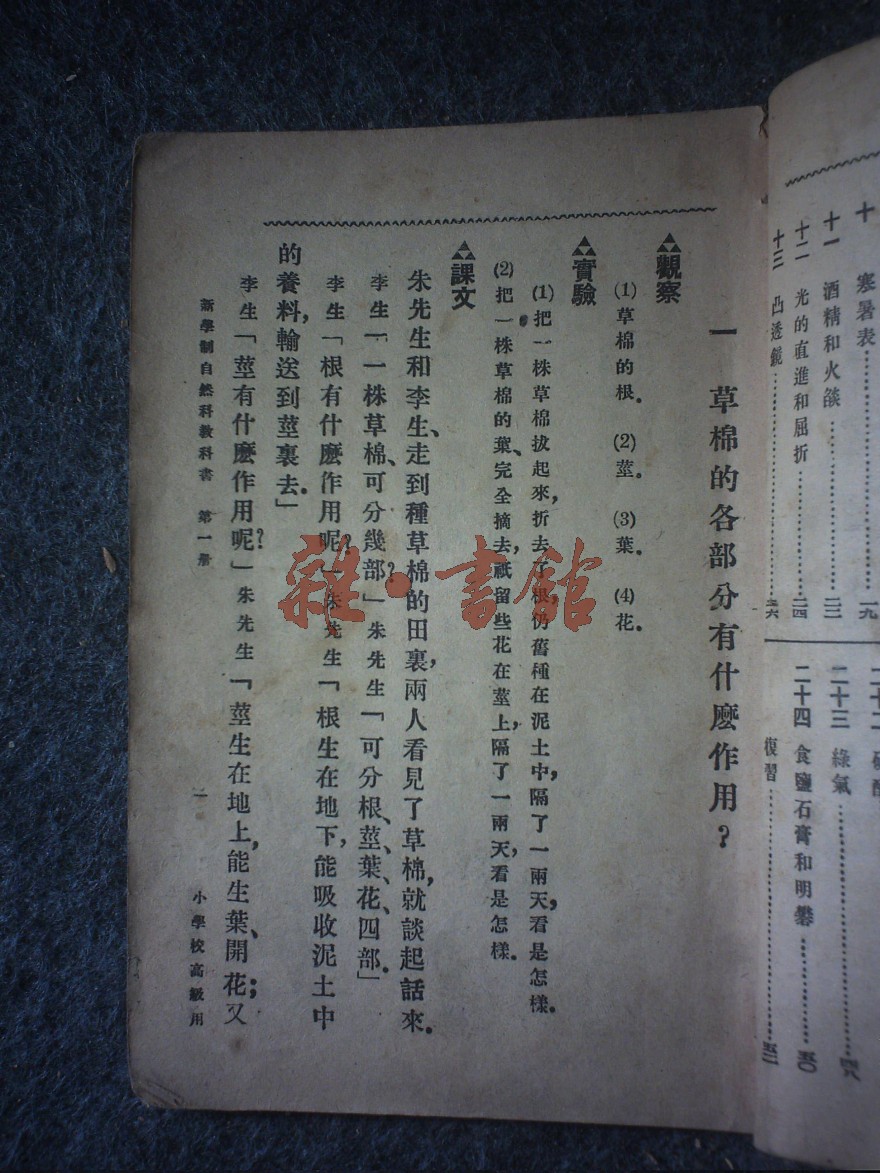 十　寒暑表……一九
十一　酒精和火燄……二三
十二　光的直進和屈折……二四
十三　凸透鏡……二六
二十三　綠氣……四八
二十四　食鹽石膏和明礬……五〇
復習……五二
一　草棉的各部分有什麼作用？
觀察
(1)草棉的根。　(2)莖。　(3)葉。　(4)花。
實驗
(1)把一株草棉拔起來，折去了根，仍舊種在泥土中，隔了一兩天，看是怎樣。
(2)把一株草棉的葉、完全摘去，祇留些花在莖上，隔了一兩天，看是怎樣。
課文
朱先生和李生、走到種草棉的田裏，兩人看見了草棉，就談起話來。
李生「一株草棉、可分幾部？」朱先生「可分根、莖、葉、花、四部。」
李生「根有什麼作用呢？」朱先生「根生在地下，能吸收泥土中
的養料，輸送到莖裏去。」
李生「莖有什麼作用呢？」朱先生「莖生在地上，能生葉、開花；又
新學制自然科教科書　第一册　一　小學校高級用
雜·書館